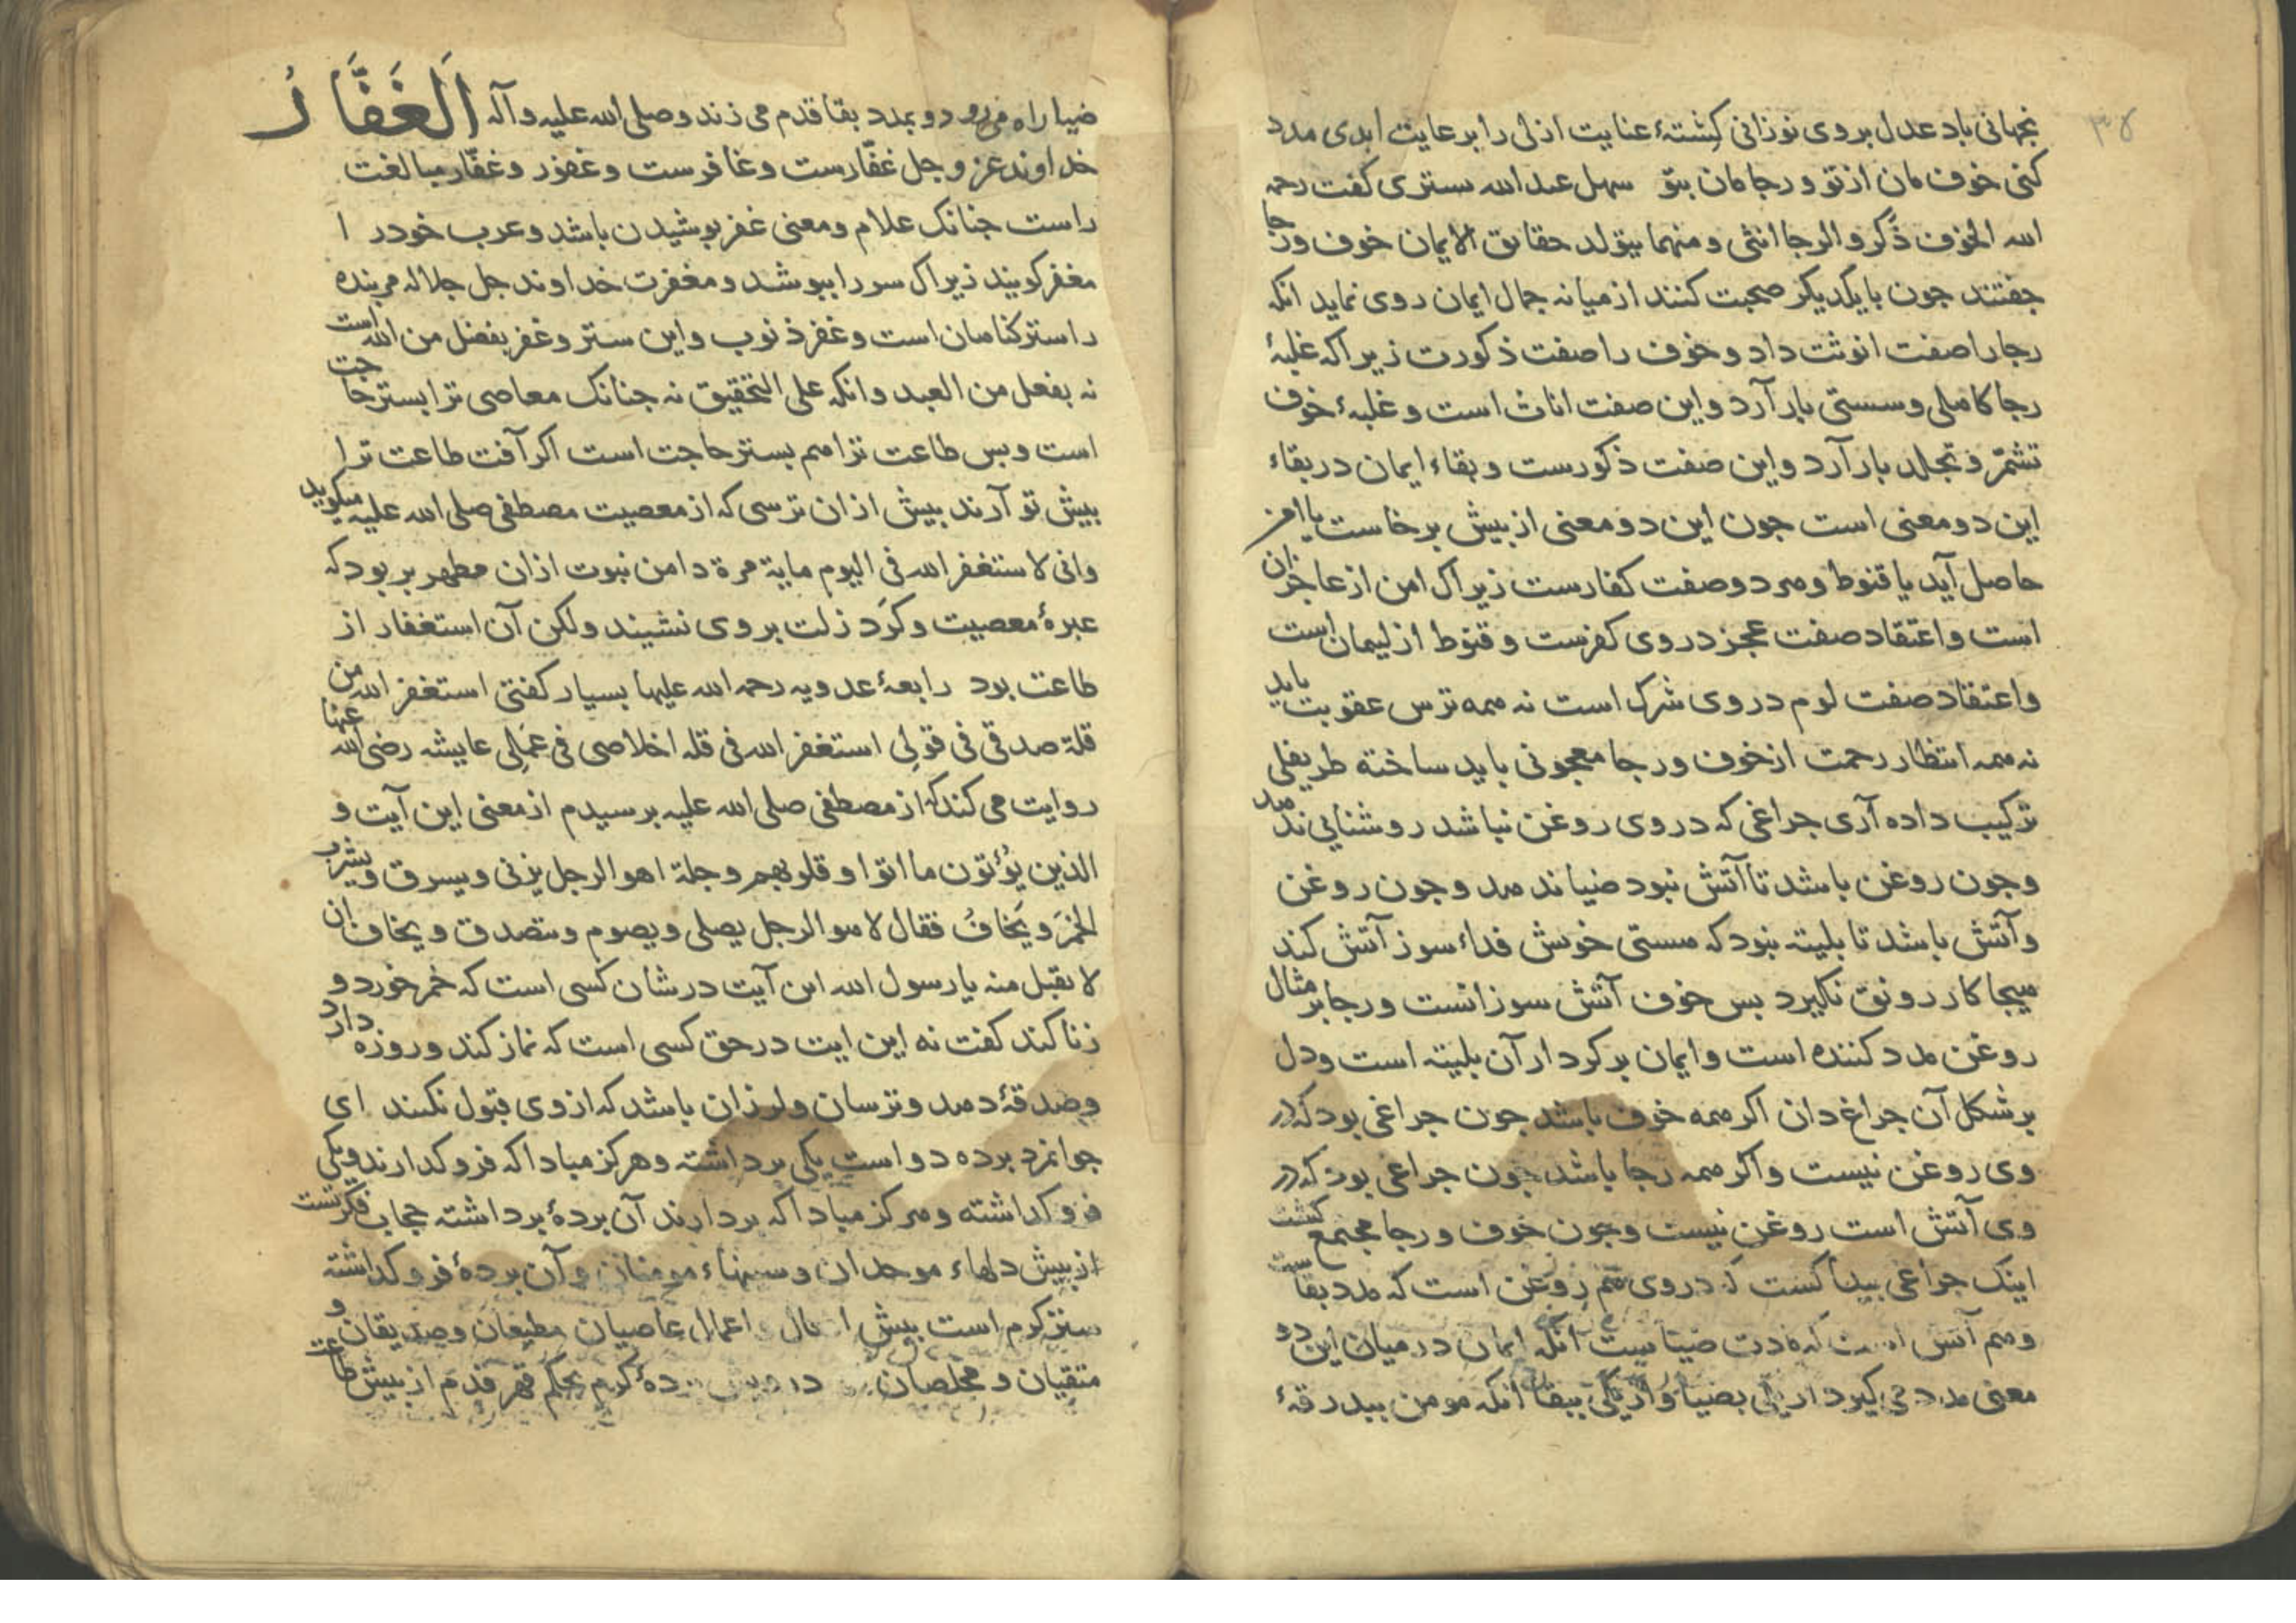 ۳۸
بجهانی باد عدل بروی نوزانی کشتهٔ عنایت ازلی را برعایت ابدی مدد
کنی خوف مان از تو و رجا مان بتو سهل عبد الله بستری کفت رحمه
الله الخوف ذَکر و الرجا انثی و منهما یتولد حقایق الایمان خوف و رجا
جفتند جون با یکدیکر صحبت کنند از میانه جمال ایمان روی نماید انکه
رجا را صفت انوثت داد و خوف را صفت ذکورت زیراکه غلبهٔ
رجا کاهلی و سستی بار آرد و این صفت اناث است و غلبهٔ خوف
تشمّر و تجلد بار آرد و این صفت ذکورست و بقاء ایمان در بقاء
این دو معنی است جون این دو معنی از بیش برخاست یا امن
حاصل آید یا قنوط و هر دو صفت کفارست زیراک امن از عاجزان
است و اعتقاد صفت عجز در وی کفرست و قنوط از لیمان است
و اعتقاد صفت لوم در وی شرک است نه همه ترس عقوبت باید
نه همه انتظار رحمت از خوف و رجا معجونی باید ساخته طریفلی
ترکیب داده آری جراغی که در وی روغن نباشد روشنایی ندهد
و جون روغن باشد تا آتش نبود ضیا ندهد و جون روغن
و آتش باشد تا بلیته نبود که هستی خویش فداء سوز آتش کند
هیجا کار رونق نکیرد بس خوف آتش سوزانست و رجا بر مثال
روغن مدد کننده است و ایمان بر کردار آن بلیته است و دل
بر شکل آن جراغ دان اکر همه خوف باشد جون جراغی بود که در
وی روغن نیست و اکر همه رجا باشد جون جراغی بود که در
وی آتش است روغن نیست و جون خوف و رجا مجتمع کشت
اینک جراغی بیدا کشت که در وی هم روغن است که مدد بقاست
و هم آتش است که مدت ضیاست آنکه ایمان در میان این دو
معنی مدد می کیرد از یکی بضیا و از یکی ببقا آنکه مومن ببدرقهٔ
ضیا راه می رود و بمدد بقا قدم می زند و صلی الله علیه و آله اَلغَفَّارُ
خداوند عز و جل غفّارست و غافرست و غفور و غفّار مبالغت
راست جنانک علام و معنی غفر بوشیدن باشد و عرب خود را
مغفر کویند زیراک سر را ببوشد و مغفرت خداوند جل جلاله مر بنده
را ستر کناهان است و غفر ذنوب و این ستر و غفر بفضل من الله است
نه بفعل من العبد و انکه علی التحقیق نه جنانک معاصی ترا بستر حاجت
است و بس طاعت ترا هم بستر حاجت است اکر آفت طاعت ترا
بیش تو آرند بیش از ان ترسی که از معصیت مصطفی صلی الله علیه میکوید
وانی لاستغفر الله فی الیوم مایة مرة دامن نبوت ازان مطهر بر بود که
عبرهٔ معصیت و کَرد زلت بر وی نشیند ولکن آن استغفار از
طاعت بود رابعهٔ عدویه رحمه الله علیها بسیار کفتی استغفر الله من
قلة صدقی فی قولی استغفر الله فی قله اخلاصی فی عملی عایشه رضی الله عنها
روایت می کند که از مصطفی صلی الله علیه برسیدم از معنی این آیت و
الذین یُؤتون ما اتوا و قلوبهم وجلة اهو الرجل یزنی و یسرق و یشرب
الخمرَ و یَخافُ فقال لا هو الرجل یصلی و یصوم و یتصدق و یخاف ان
لا یقبل منه یا رسول الله این آیت در شان کسی است که خمر خورد و
زنا کند کفت نه این ایت در حق کسی است که نماز کند و روزه دارد
و صدقهٔ دهد و ترسان و لرزان باشد که از وی قبول نکنند ای
جوانمرد برده دو است یکی برداشته و هرکز مبادا که فرو کدارند و یکی
فرو کداشته و هرکز مبادا که بردارند آن بردهٔ برداشته حجاب فکرتست
از بیش دلهاء موحدان و سینهاء مومنان و آن بردهٔ فرو کداشته
ستر کرم است بیش اعمال عاصیان مطیعان و صدیقان و
متقیان و مخلصان کرم بحکم قهر قدم از بیش طاعت